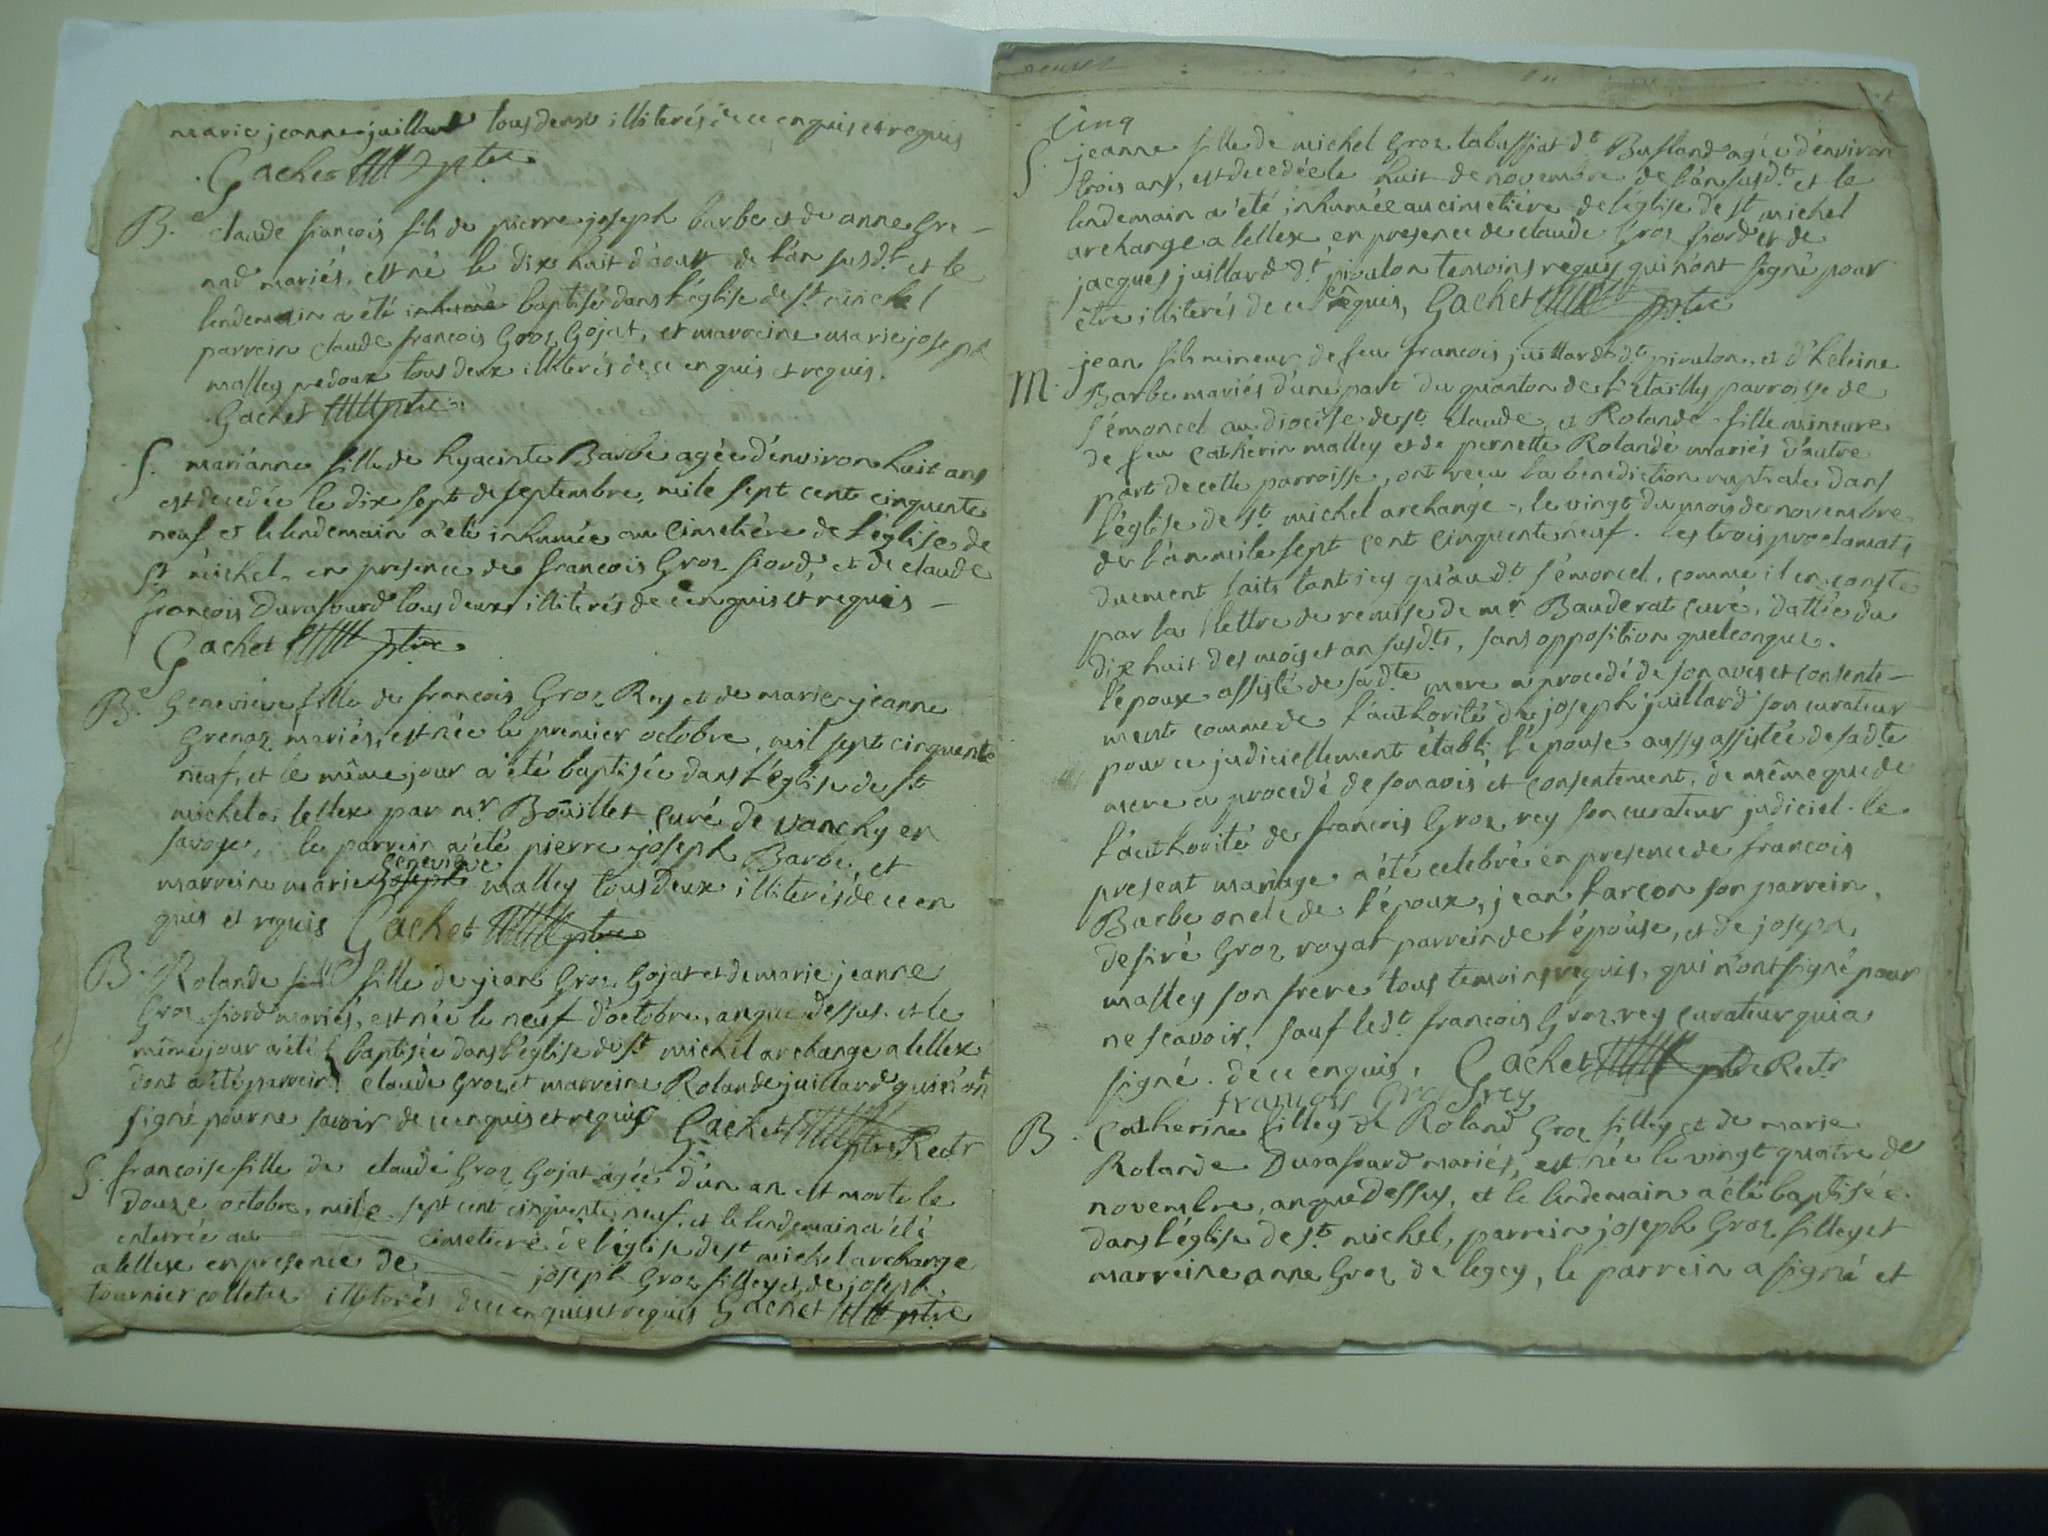 marie jeanne juillard tous deux illiterés de ce enquis et requis
Gachet ptre
B. claude françois fils de pierre joseph barbe et de anne Gre-
nad mariés, est né le dix huit d'aoust de l'an susd.t et le
lendemain a été inhumé baptisé dans l'église de st michel
parrein claude françois Groz Gojat, et marreine marie joseph
malley predoux tous deux illiterés de ce enquis et requis.
Gachet ptre
S. marianne fille de hyacinte Barbe agée d'environ huit ans
est decedée le dix sept de septembre, mile sept cent cinquente
neuf et le lendemain a été inhumée au cimetière de l'église de
st michel en presence de françois Groz fiord, et de claude
françois Durafourd tous deux illiterés de ce enquis et requis -
Gachet ptre
B. Geneviéve fille de françois Groz Rey et de marie jeanne
Grenaz, mariés, est née le premier octobre, mil sept cinquente
neuf, et le même jour a été baptisée dans l'église de st
michel a lellex par mr Boüillet curé de vanchy en
savoye, le parrein a été pierre joseph Barbe, et
marreine marie joseph genevieve malley tous deux illiterés de ce en
quis et requis Gachet ptre
B. Rolande fill fille de jean Groz Gojat et de marie jeanne
Groz fiord mariés, est née le neuf d'octobre, an que dessus, et le
même jour a été baptisée dans l'église de st michel archange a lellex
dont a été parrein claude Groz et marreine Rolande juillard qui n'ont
signé pour ne scavoir de ce enquis et requis Gachet ptre Rectr
S. françoise fille de claude Groz Gojat agée d'un an est morte le
douze octobre, mile sept cent cinquente neuf, et le lendemain a été
enterrée au cimetiere de l'église de st michel archange
a lellex en presence de joseph Groz filley et de joseph
tournier colletet illiterés de ce enquis et requis Gachet ptre
cinq
S. jeanne fille de michel Groz tabussiat dt Busland agée d'environ
trois ans, est decedée le huit de novembre de l'an susd.t et le
lendemain a été inhumée au cimetière de l'église de st michel
archange a lellex en presence de claude Groz fiord et de
jacques juillard dt pioulon temoins requis qui n'ont signé pour
être illiterés de ce requis, Gachet ptre
M. jean fils mineur de feu françois juillard dt pioulon, et d'heleine
Barbe mariés d'une part du quanton de l'etailly parroisse de
s'émoncel au diocése de st claude, et Rolande fille mineure
de feu catherin malley et de pernette Rolande mariés d'autre
part de cette parroisse, ont reçu la benediction nuptiale dans
l'église de st michel archange, le vingt du mois de novembre
de l'an mile sept cent cinquente neuf. les trois proclamats
duement faits tant icy qu'au dt s'émoncel, comme il en conste
par la lettre de remise de mr Bauderat curé, dattée du
dix huit des mois et an susd.ts, sans opposition quelconque.
l'époux assisté de sadte mere a procedé de son avis et consente-
ment comme de l'authorité de joseph juillard son curateur
pour ce judiciellement établi, l'épouse aussy assistée de sadte
mere a procedé de son avis et consentement, de même que de
l'authorité de françois Groz rey son curateur judiciel. le
present mariage a été celebré en presence de françois
Barbe oncle de l'époux, jean tarçon son parrein,
desiré Groz royat parrein de l'épouse, et de joseph
malley son frere tous temoins requis, qui n'ont signé pour
ne scavoir, sauf ledt françois Groz rey curateur qui a
signé. de ce enquis. Gachet ptre Rectr
françois Groz Rey
B. catherine filley de Roland Groz filley et de marie
Rolande Durafourd mariés, est née le vingt quatre de
novembre, an que dessus, et le lendemain a été baptisée
dans l'église de st michel, parrein joseph Groz filley et
marreine anne Groz de legey, le parrein a signé et